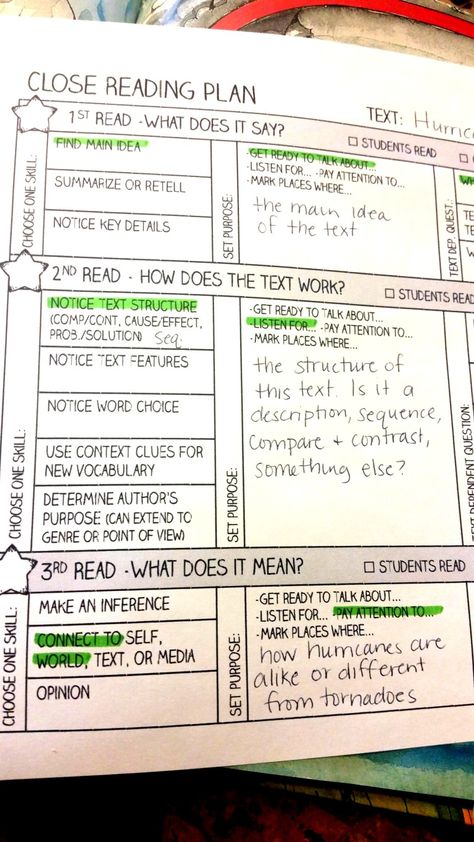 CLOSE READING PLAN
TEXT:
1ST READ - WHAT DOES IT SAY?
STUDENTS READ
CHOOSE ONE SKILL:
FIND MAIN IDEA
SUMMARIZE OR RETELL
NOTICE KEY DETAILS
SET PURPOSE:
-GET READY TO TALK ABOUT...
-LISTEN FOR... -PAY ATTENTION TO...
-MARK PLACES WHERE...
the main idea
of the text
TEXT DEP. QUEST.:
2ND READ - HOW DOES THE TEXT WORK?
STUDENTS READ
CHOOSE ONE SKILL:
NOTICE TEXT STRUCTURE
(COMP/CONT, CAUSE/EFFECT,
PROB./SOLUTION) Seq.
NOTICE TEXT FEATURES
NOTICE WORD CHOICE
USE CONTEXT CLUES FOR
NEW VOCABULARY
DETERMINE AUTHOR'S
PURPOSE (CAN EXTEND TO
GENRE OR POINT OF VIEW)
SET PURPOSE:
-GET READY TO TALK ABOUT...
-LISTEN FOR... -PAY ATTENTION TO...
-MARK PLACES WHERE...
the structure of
this text. Is it a
description, sequence,
compare + contrast,
something else?
TEXT DEPENDENT QUESTION:
3RD READ - WHAT DOES IT MEAN?
STUDENTS READ
CHOOSE ONE SKILL:
MAKE AN INFERENCE
CONNECT TO SELF,
WORLD, TEXT, OR MEDIA
OPINION
SET PURPOSE:
-GET READY TO TALK ABOUT...
-LISTEN FOR... -PAY ATTENTION TO...
-MARK PLACES WHERE...
how hurricanes are
alike or different
from tornadoes